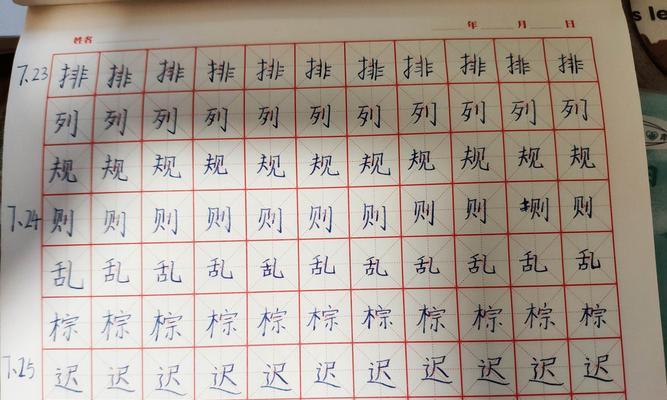 s le
姓名 年 月 日
7.23 排 排 排 排 排 排 排 排 排 排 排
列 列 列 列 列 列 列 列 列 列 列
规 规 规 规 规 规 规 规 规 规 规
7.24 则 则 则 则 则 则 则 则 则 则 则
乱 乱 乱 乱 乱 乱 乱 乱 乱 乱 乱
棕 棕 棕 棕 棕 棕 棕 棕 棕 棕 棕
7.25 迟 迟 迟 迟 迟 迟 迟 迟 迟 迟 迟